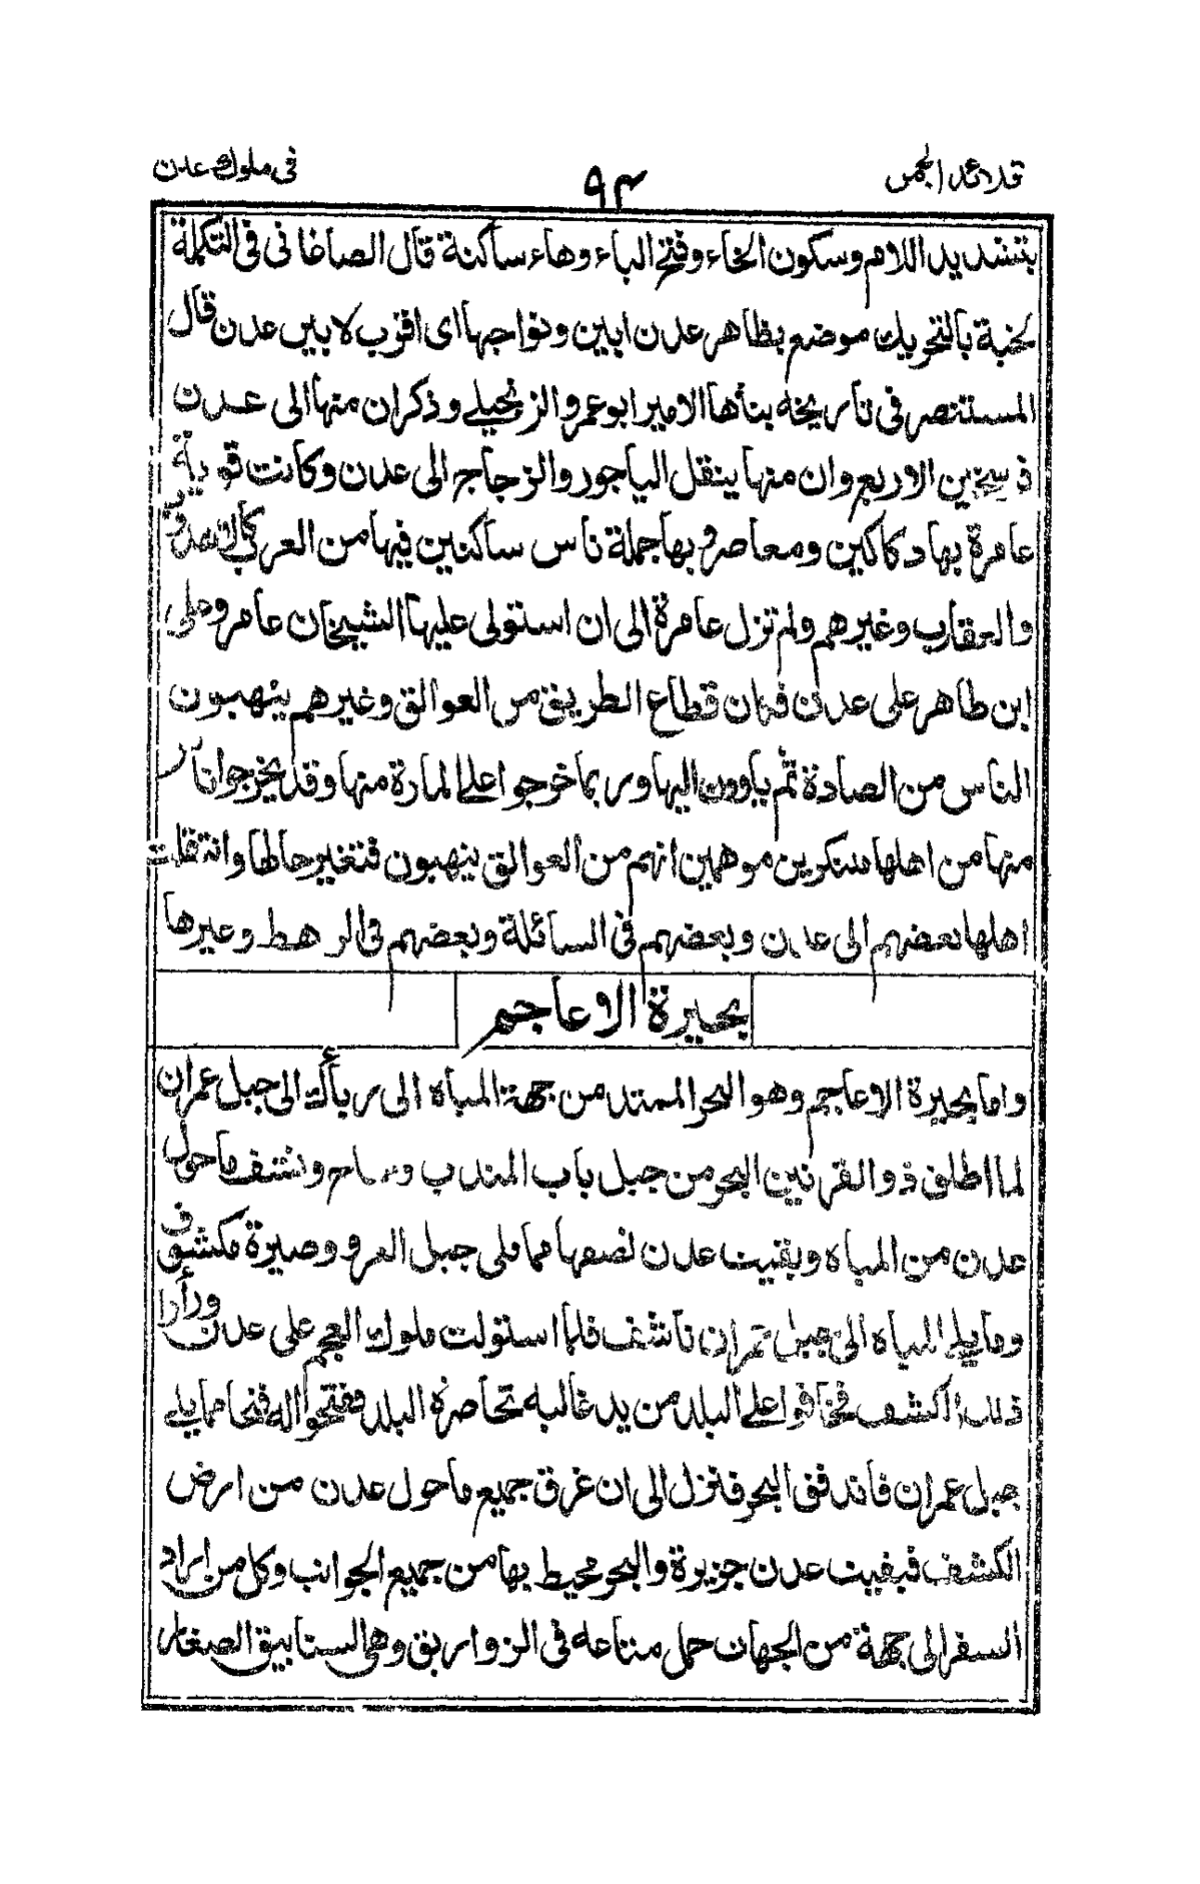 قلائد الجمن
٩٤
فى ملوك عدن
بتشديد اللام وسكون الخاء وفتح الباء وهاء ساكنة قال الصاغانى فى التكملة
لخبة بالتحريك موضع بظاهر عدن ابين ونواجها اى اقرب لابين عدن قال
المستنصر فى تاريخه بناها الامير ابو عمرو الزنجيلے وذكر ان منها الى عدن
فرسخين الاربع وان منها ينقل الياجور والزجاج الى عدن وكانت قرية
عامرة بها دكاكين ومعاصر وبها جملة ناس ساكنين فيها من العرب
والعقارب وغيرهم ولم تزل عامرة الى ان استولى عليها الشيخان عامر وعلى
ابن طاهر على عدن فكان قطاع الطريق من العوالق وغيرهم ينهبون
الناس من الصادة ثم ياوون اليها وربما خرجوا على المارة منها وقد يخرجو اناس
منها من اهلها متنكرين موهمين انهم من العوالق ينهبون فتغير حالها وانتقلت
اهلها بعضهم الى عدن وبعضهم فى السائلة وبعضهم فى الرهط وغيرها
بحيرة الاعاجم
واما بحيرة الاعاجم وهو البحر الممتد من جهة المباه الى رباك الى جبل عمران
لما اطلق ذو القرنين البحر من جبل باب المندب وساح ونشف ماحول
عدن من المباه وبقيت عدن نصفها مما ملى جبل العر وصيرة مكشوف
ومايلے المباه الى جبل عمران ناشف فلما استولت ملوك العجم على عدن وراوا
ذلك اكشف فخافوا على البلد من يد غالبه تحاصره البلد ففتحوا له فتحا ممايلے
جبل عمران فاندفق البحر فنزل الى ان غرق جميع ماحول عدن من ارض
الكشف فبقيت عدن جزيرة والبحر محيط بها من جميع الجوانب وكل من اراد
السفر الى جهة من الجهات حمل متاعه فى الزواريق وهى السنابيق الصغار